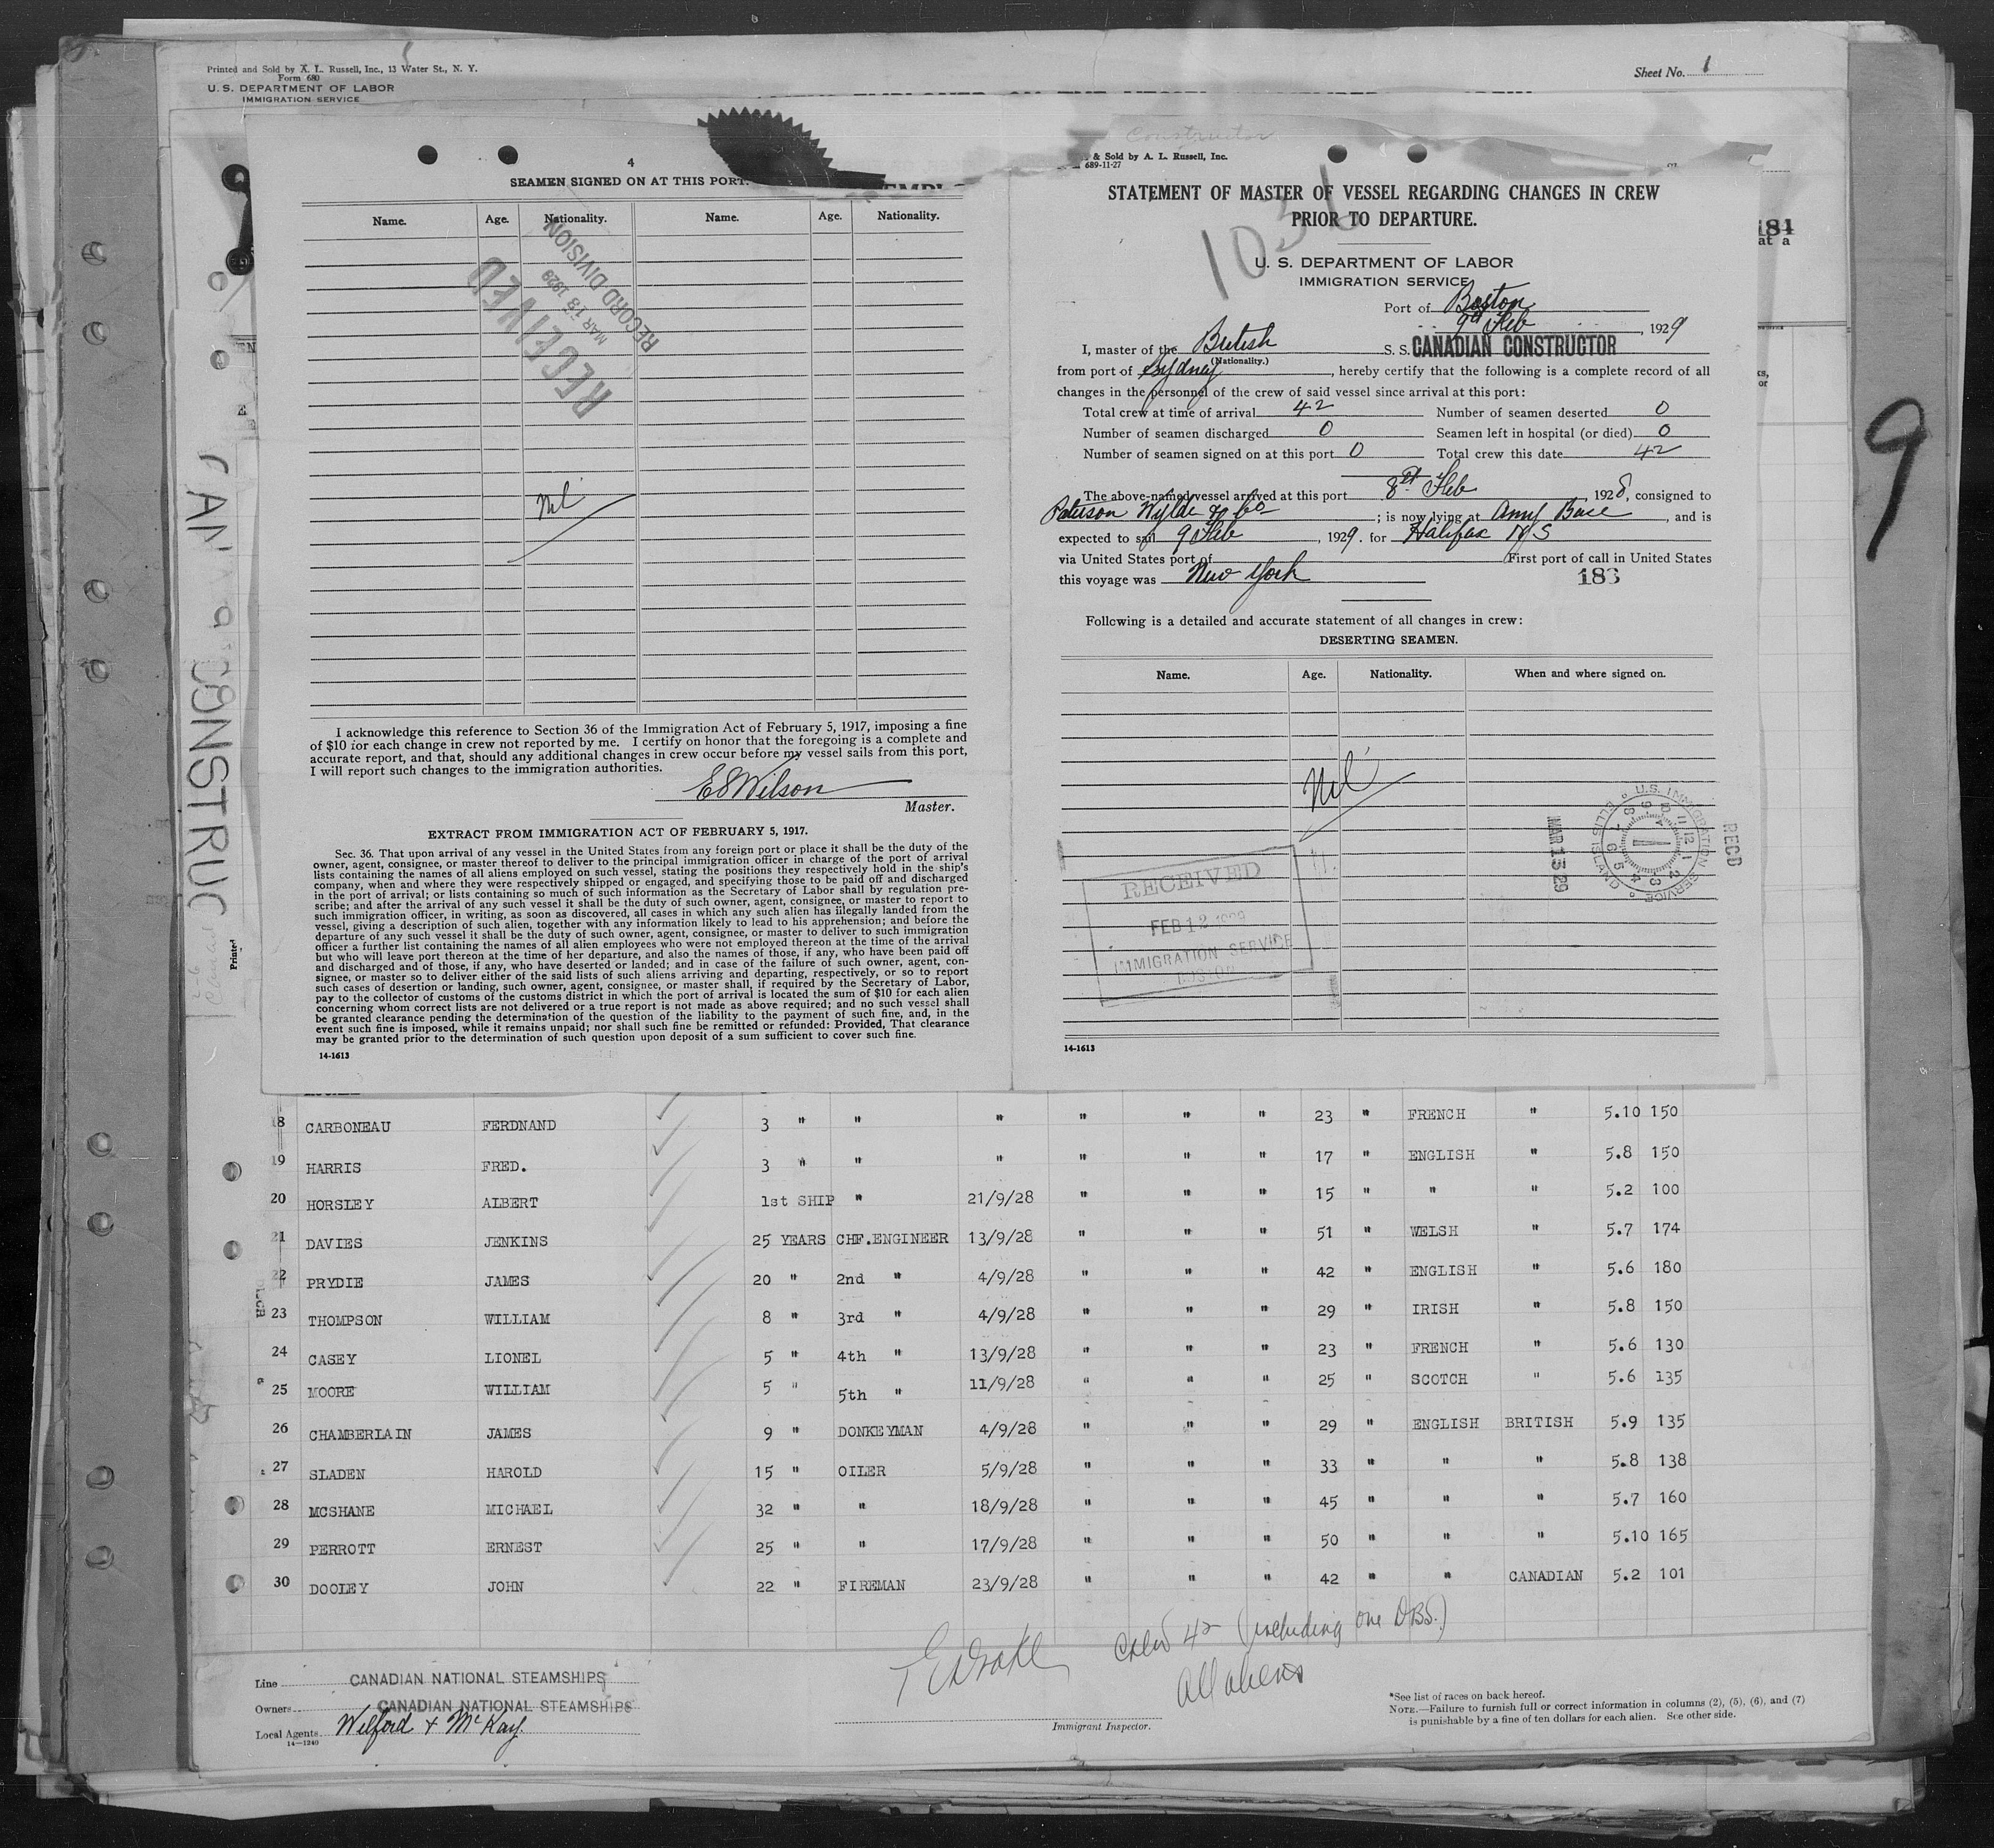 Printed and Sold by A. L. Russell, Inc., 13 Water St., N. Y.
Form 680
U. S. DEPARTMENT OF LABOR
IMMIGRATION SERVICE
Sheet No. 1
4
SEAMEN SIGNED ON AT THIS PORT.
Name. Age. Nationality. Name. Age. Nationality.
RECEIVED
MAR 13 1929
RECORD DIVISION
Nil
I acknowledge this reference to Section 36 of the Immigration Act of February 5, 1917, imposing a fine
of $10 for each change in crew not reported by me. I certify on honor that the foregoing is a complete and
accurate report, and that, should any additional changes in crew occur before my vessel sails from this port,
I will report such changes to the immigration authorities.
E S Wilson
Master.
EXTRACT FROM IMMIGRATION ACT OF FEBRUARY 5, 1917.
Sec. 36. That upon arrival of any vessel in the United States from any foreign port or place it shall be the duty of the
owner, agent, consignee, or master thereof to deliver to the principal immigration officer in charge of the port of arrival
lists containing the names of all aliens employed on such vessel, stating the positions they respectively hold in the ship's
company, when and where they were respectively shipped or engaged, and specifying those to be paid off and discharged
in the port of arrival; or lists containing so much of such information as the Secretary of Labor shall by regulation pre-
scribe; and after the arrival of any such vessel it shall be the duty of such owner, agent, consignee, or master to report to
such immigration officer, in writing, as soon as discovered, all cases in which any such alien has illegally landed from the
vessel, giving a description of such alien, together with any information likely to lead to his apprehension; and before the
departure of any such vessel it shall be the duty of such owner, agent, consignee, or master to deliver to such immigration
officer a further list containing the names of all alien employees who were not employed thereon at the time of the arrival
but who will leave port thereon at the time of her departure, and also the names of those, if any, who have been paid off
and discharged and of those, if any, who have deserted or landed; and in case of the failure of such owner, agent, con-
signee, or master so to deliver either of the said lists of such aliens arriving and departing, respectively, or so to report
such cases of desertion or landing, such owner, agent, consignee, or master shall, if required by the Secretary of Labor,
pay to the collector of customs of the customs district in which the port of arrival is located the sum of $10 for each alien
concerning whom correct lists are not delivered or a true report is not made as above required; and no such vessel shall
be granted clearance pending the determination of the question of the liability to the payment of such fine, and, in the
event such fine is imposed, while it remains unpaid; nor shall such fine be remitted or refunded: Provided, That clearance
may be granted prior to the determination of such question upon deposit of a sum sufficient to cover such fine.
14-1613
Constructor
& Sold by A. L. Russell, Inc.
689-11-27
STATEMENT OF MASTER OF VESSEL REGARDING CHANGES IN CREW
PRIOR TO DEPARTURE.
U. S. DEPARTMENT OF LABOR
IMMIGRATION SERVICE
Port of Boston
9th Feb, 1929
I, master of the British S. S. CANADIAN CONSTRUCTOR
(Nationality.)
from port of Sydney, hereby certify that the following is a complete record of all
changes in the personnel of the crew of said vessel since arrival at this port:
Total crew at time of arrival 42 Number of seamen deserted 0
Number of seamen discharged 0 Seamen left in hospital (or died) 0
Number of seamen signed on at this port 0 Total crew this date 42
The above-named vessel arrived at this port 8th Feb, 1928, consigned to
Paterson Wylde & Co; is now lying at Army Base, and is
expected to sail 9 Feb, 1929. for Halifax N S
via United States port of First port of call in United States
this voyage was New York
183
Following is a detailed and accurate statement of all changes in crew:
DESERTING SEAMEN.
Name. Age. Nationality. When and where signed on.
Nil
RECEIVED
FEB 12 1929
IMMIGRATION SERVICE
BOSTON
U.S. IMMIGRATION SERVICE
ELLIS ISLAND
REC'D
MAR 13 29
14-1613
184
at a
9
CONSTRUC
Printed
18 CARBONEAU FERDNAND 3 " " " " " " 23 " FRENCH " 5.10 150
19 HARRIS FRED. 3 " " " " " " 17 " ENGLISH " 5.8 150
20 HORSLEY ALBERT 1st SHIP " 21/9/28 " " " 15 " " " 5.2 100
21 DAVIES JENKINS 25 YEARS CHF.ENGINEER 13/9/28 " " " 51 " WELSH " 5.7 174
22 PRYDIE JAMES 20 " 2nd " 4/9/28 " " " 42 " ENGLISH " 5.6 180
23 THOMPSON WILLIAM 8 " 3rd " 4/9/28 " " " 29 " IRISH " 5.8 150
24 CASEY LIONEL 5 " 4th " 13/9/28 " " " 23 " FRENCH " 5.6 130
25 MOORE WILLIAM 5 " 5th " 11/9/28 " " " 25 " SCOTCH " 5.6 135
26 CHAMBERLAIN JAMES 9 " DONKEYMAN 4/9/28 " " " 29 " ENGLISH BRITISH 5.9 135
27 SLADEN HAROLD 15 " OILER 5/9/28 " " " 33 " " " 5.8 138
28 MCSHANE MICHAEL 32 " " 18/9/28 " " " 45 " " " 5.7 160
29 PERROTT ERNEST 25 " " 17/9/28 " " " 50 " " " 5.10 165
30 DOOLEY JOHN 22 " FIREMAN 23/9/28 " " " 42 " " CANADIAN 5.2 101
Crew 42 (including one DBS.)
All aliens
Line CANADIAN NATIONAL STEAMSHIPS
Owners CANADIAN NATIONAL STEAMSHIPS
Local Agents Wilford & McKay.
14-1240
Immigrant Inspector.
*See list of races on back hereof.
NOTE.—Failure to furnish full or correct information in columns (2), (5), (6), and (7)
is punishable by a fine of ten dollars for each alien. See other side.